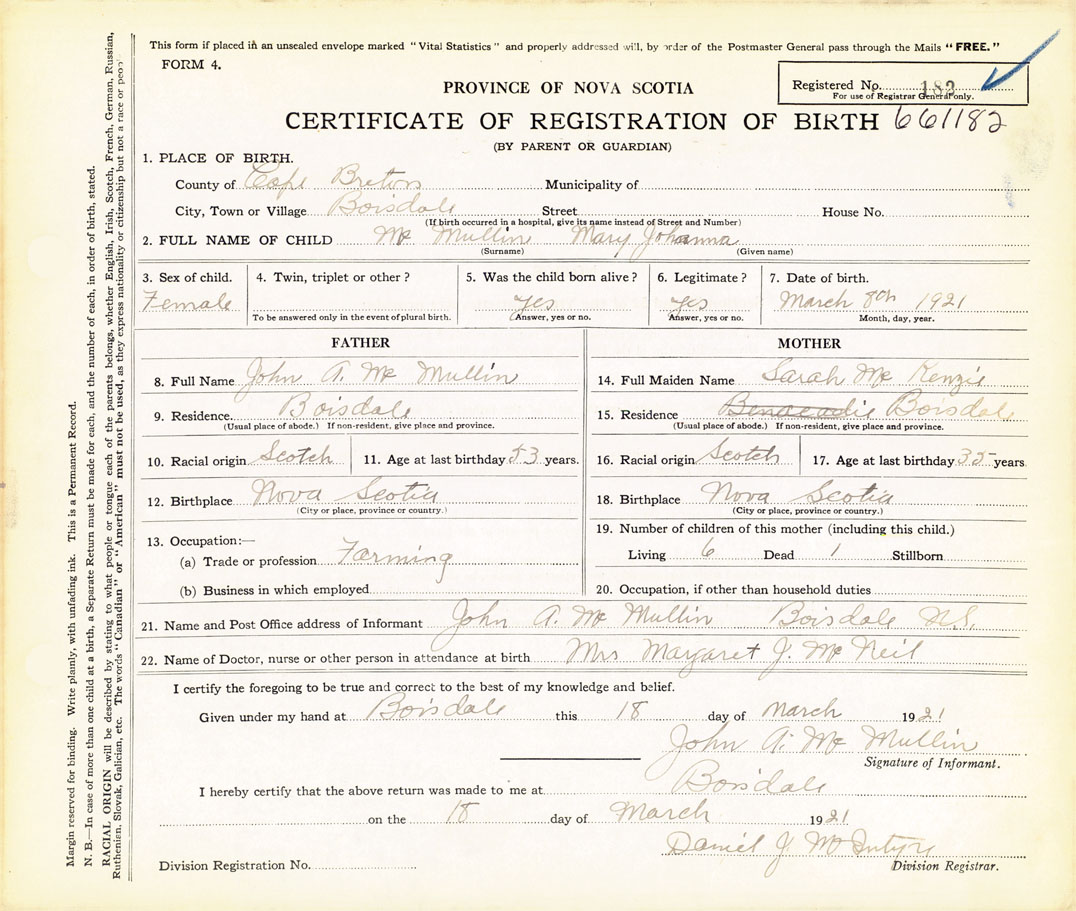 This form if placed in an unsealed envelope marked "Vital Statistics" and properly addressed will, by order of the Postmaster General pass through the Mails "FREE."
FORM 4.
Registered No. 182
For use of Registrar General only.
PROVINCE OF NOVA SCOTIA
CERTIFICATE OF REGISTRATION OF BIRTH 661182
(BY PARENT OR GUARDIAN)
1. PLACE OF BIRTH.
County of Cape Breton Municipality of
City, Town or Village Boisdale Street House No.
(If birth occurred in a hospital, give its name instead of Street and Number)
2. FULL NAME OF CHILD Mc Mullin Mary Johanna
(Surname) (Given name)
3. Sex of child. 4. Twin, triplet or other? 5. Was the child born alive? 6. Legitimate? 7. Date of birth.
Female yes yes March 8th 1921
To be answered only in the event of plural birth. Answer, yes or no. Answer, yes or no. Month, day, year.
FATHER
8. Full Name John A. Mc Mullin
9. Residence. Boisdale
(Usual place of abode.) If non-resident, give place and province.
10. Racial origin Scotch 11. Age at last birthday 53 years.
12. Birthplace Nova Scotia
(City or place, province or country.)
13. Occupation:—
(a) Trade or profession Farming
(b) Business in which employed
MOTHER
14. Full Maiden Name Sarah Mc Kenzie
15. Residence Benacadie Boisdale
(Usual place of abode.) If non-resident, give place and province.
16. Racial origin Scotch 17. Age at last birthday 35 years
18. Birthplace Nova Scotia
(City or place, province or country.)
19. Number of children of this mother (including this child.)
Living 6 Dead 1 Stillborn
20. Occupation, if other than household duties
21. Name and Post Office address of Informant John A. Mc Mullin Boisdale N.S.
22. Name of Doctor, nurse or other person in attendance at birth Mrs Margaret J. Mc Neil
I certify the foregoing to be true and correct to the best of my knowledge and belief.
Given under my hand at Boisdale this 18 day of March 1921
John A. Mc Mullin
Signature of Informant.
I hereby certify that the above return was made to me at Boisdale
on the 18 day of March 1921
Daniel J. McIntyre
Division Registration No. Division Registrar.
Margin reserved for binding. Write plainly, with unfading ink. This is a Permanent Record.
N. B.—In case of more than one child at a birth, a Separate Return must be made for each, and the number of each, in order of birth, stated.
RACIAL ORIGIN will be described by stating to what people or tongue each of the parents belongs, whether English, Irish, Scotch, French, German, Russian,
Ruthenian, Slovak, Galician, etc. The words "Canadian" or "American" must not be used, as they express nationality or citizenship but not a race or peop